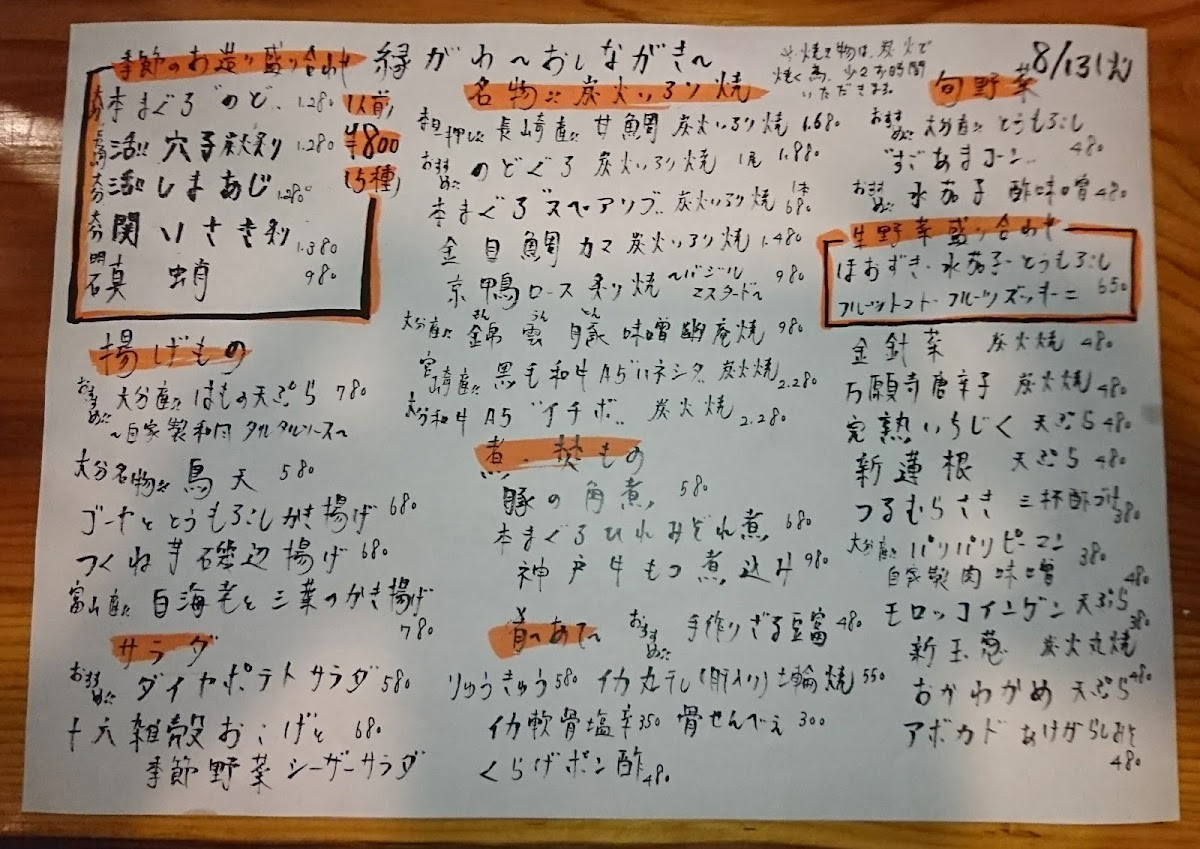 縁がわ〜おしながき〜
8/13(火)
※焼き物は、炭火で
焼く為、少々お時間
いただきます。
季節のお造り盛り合わせ
1人前
¥1800
(5種)
大分 本まぐろ "のど" 1.280
活!! 穴子炭炙り 1.280
大分 活!! しまあじ 1.280
大分 関いさき炙り 1.380
明石 真蛸 980
揚げもの
おすすめ!! 大分産!! はもの天ぷら 780
〜自家製和風タルタルソース〜
大分名物!! 鳥天 580
ゴーヤととうもろこしかき揚げ 680
つくね芋磯辺揚げ 680
富山産!! 白海老と三葉のかき揚げ
780
サラダ
おすすめ!! ダイヤポテトサラダ 580
十六雑穀おこげと 680
季節野菜シーザーサラダ
名物!! 炭火いろり焼
長崎産!! 甘鯛 炭火いろり焼 1.680
おすすめ!! のどぐろ 炭火いろり焼 1尾 1.880
本まぐろ"スペアリブ" 炭火いろり焼 1本 680
金目鯛カマ 炭火いろり焼 1.480
京鴨ロース炙り焼 〜バジルマスタード〜 980
大分産!! 錦雲豚 味噌幽庵焼 980
きん うん とん
宮崎産!! 黒毛和牛A5"ネシタ" 炭火焼 2.280
大分和牛 A5 "イチボ" 炭火焼 2.280
煮・焚もの
豚の角煮 580
本まぐろひれみぞれ煮 680
神戸牛もつ煮込み 980
肴〜あて〜
おすすめ!! 手作りざる豆富 480
りゅうきゅう 580 イカ丸干し(肝入り)七輪焼 550
イカ軟骨塩辛 350 骨せんべえ 300
くらげポン酢 480
旬野菜
おすすめ!! 大分産!! とうもろこし
"すごあまコーン" 480
おすすめ!! 水茄子 酢味噌 480
生野菜盛り合わせ
ほおずき・水茄子・とうもろこし
フルーツトマト・フルーツズッキーニ 650
金針菜 炭火焼 480
万願寺唐辛子 炭火焼 480
完熟いちじく 天ぷら 480
新蓮根 天ぷら 480
つるむらさき 三杯酢づけ 380
大分産!! パリパリピーマン
自家製肉味噌 380
モロッコインゲン 天ぷら 480
新玉葱 炭火丸焼 380
おかわかめ 天ぷら 480
アボカド
480